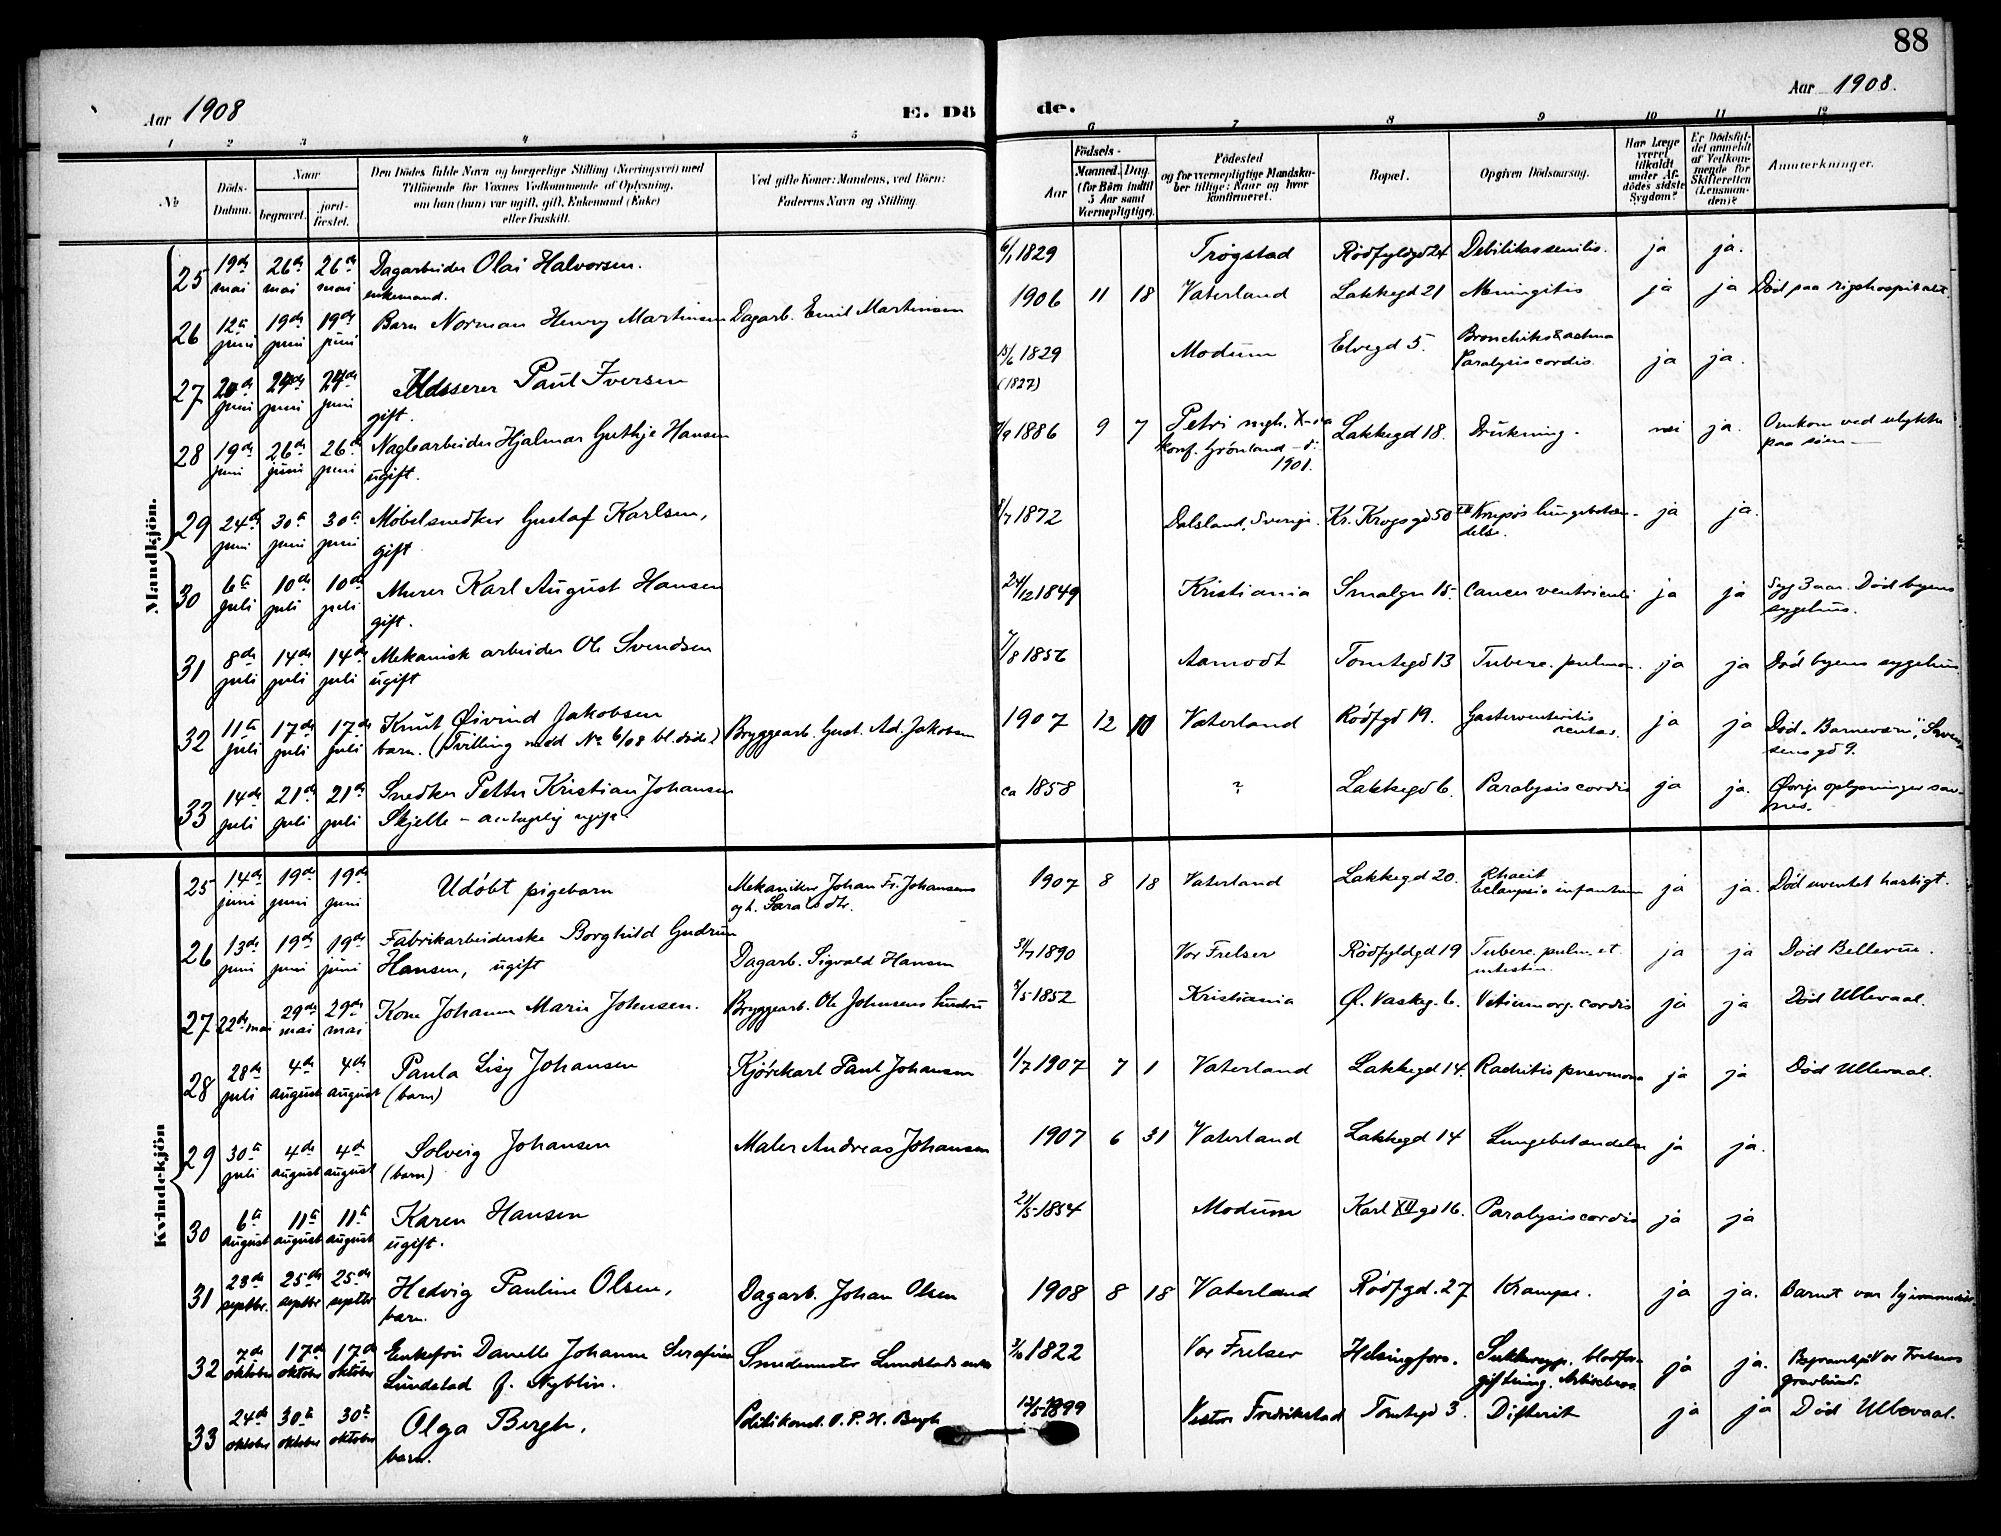 88
Aar 1908
E. Dö de.
Aar 1908.
1 2 3 4 5 6 7 8 9 10 11 12
No
Döds-Datum.
Naar
begravet. jordfæstet.
Den Dödes fulde Navn og borgerlige Stilling (Næringsvei) med
Tilföiende for Voxnes Vedkommende af Oplysning,
om han (hun) var ugift, gift, Enkemand (Enke)
eller fraskilt.
Ved gifte Koner: Mandens, ved Börn:
Faderens Navn og Stilling.
Födsels-
Aar
Maaned. Dag.
(for Børn indtil
5 Aar samt
Værnepligtige).
Födested
og for værnepligtige Mandska-
ber tillige: Naar og hvor
konfirmeret.
Bopæl.
Opgiven Dödsaarsag.
Har Læge
været
tilkaldt
under Af-
dödes sidste
Sygdom?
Er Dödsfal-
det anmeldt
af Vedkom-
mende for
Skifteretten
(Lensman-
den)?
Anmærkninger.
Mandkjön.
25 19de mai 26de mai 26de mai Dagarbeider Olai Halvorsen. enkemand. 6/1 1829 Trøgstad Rödfyldgd 24 Debilitas senilis. ja ja.
26 12te juni 19de juni 19de juni Barn Norman Henry Martinsen Dagarb. Emil Martinsen 1906 11 18 Vaterland Lakkegd 21 Meningitis ja ja Död paa rigshospitalet.
27 20de juni 24de juni 24de juni Paul Iversen gift. 15/6 1829 (1827) Modum Elvegd 5. Bronchitis & astma Paralysis cordis. ja ja.
28 19de juni 26de juni 26de juni Naglearbeider Hjalmar Guthje Hansen ugift. 7/9 1886 9 7 Petri mgh. X-ia konf. Grönland 1901. Lakkegd 18. Drukning. nei ja. Omkom ved ulykke paa sjöen
29 24de juni 30te juni 30te juni Möbelsnedker Gustaf Karlsen, gift. 8/7 1872 Dalsland, Sverige. Kr. Krogsgd 50 Krupös lungebetændelse. ja ja.
30 6te juli 10de juli 10de juli Murer Karl August Hansen gift. 24/12 1849 Kristiania Smalgn 15. Cancer ventriculi ja ja Syg 3 aar. Död byens sygehus.
31 8de juli 14de juli 14de juli Mekanisk arbeider Ole Svendsen ugift 7/8 1856 Aamodt Tomtegd 13 Tuberc. pulmon. ja ja Död byens sygehus
32 11te juli 17de juli 17de juli Knut Øivind Jakobsen barn. (Tvilling med No 6/08 bl. döde) Bryggearb. Gust. Ad. Jakobsen 1907 12 10 Vaterland Rödfgd 19. ja ja Död "Barnevern",
33 14de juli 21de juli 21de juli Snedker Petter Kristian Johansen Skjelle - antagelig ugift. ca 1858 ? Lakkegd 6. Paralysis cordis ja ja. Øvrige oplysninger savnes.
Kvindekjön
25 14de juni 19de juni 19de juni Udöbt pigebarn Mekaniker Johan Fr. Johansens og h. Sara 1907 8 18 Vaterland Lakkegd 20. Rhacit eclampsia infantum ja ja. Död uventet hastigt.
26 13de juni 19de juni 19de juni Fabrikarbeiderske Borghild Gudrun Hansen, ugift Dagarb. Sigvald Hansen 31/7 1890 Vor Frelser Rödfyldgd 19 Tuberc. pulm. et intestin. ja ja Död Bellevue.
27 22de mai 29de mai 29de mai Kone Johanne Marie Johnsen. Bryggearb. Ole Johnsens 1/5 1852 Kristiania Ø. Vaskeg. 6. Vitium org. cordis ja ja Död Ullevaal.
28 28de juli 4de august 4de august Paula Lisy Johansen (barn) Kjörekarl Paul Johansen 1/7 1907 7 1 Vaterland Lakkegd 14. Rachitis pnevmona ja ja Död Ullevaal.
29 30te juli 4de august 4de august Solveig Johansen (barn) Maler Andreas Johansen 1907 6 31 Vaterland Lakkegd 14 Lungebetændelse ja ja.
30 6te august 11te august 11te august Karen Hansen ugift. 21/5 1854 Modum Karl XII gd 16. Paralysis cordis ja ja
31 23de septbr. 25de septbr 25de septbr Hedvig Pauline Olsen, barn. Dagarb. Johan Olsen 1908 8 18 Vaterland Rödfgd. 27 Krampe. ja ja. Barnet var hjemmedöbt
32 7de oktober 17de oktober 17de oktober Enkefru Danelle Johanne Serafine Lundstad f. Nyblin. Smedemester Lundstads enke 3/6 1822 Vor Frelser Helsingfors. Sukkersyge. blodforgiftning. ja ja. Begravet paa Vor Frelsers gravlund.
33 24de oktober 30te oktober 30te oktober Olga Bergh, barn. Politikonst. O. P. H. Bergh 12/5 1899 Vestre Fredrikstad Tomtegd 3. Difterit ja ja Död Ullevaal.